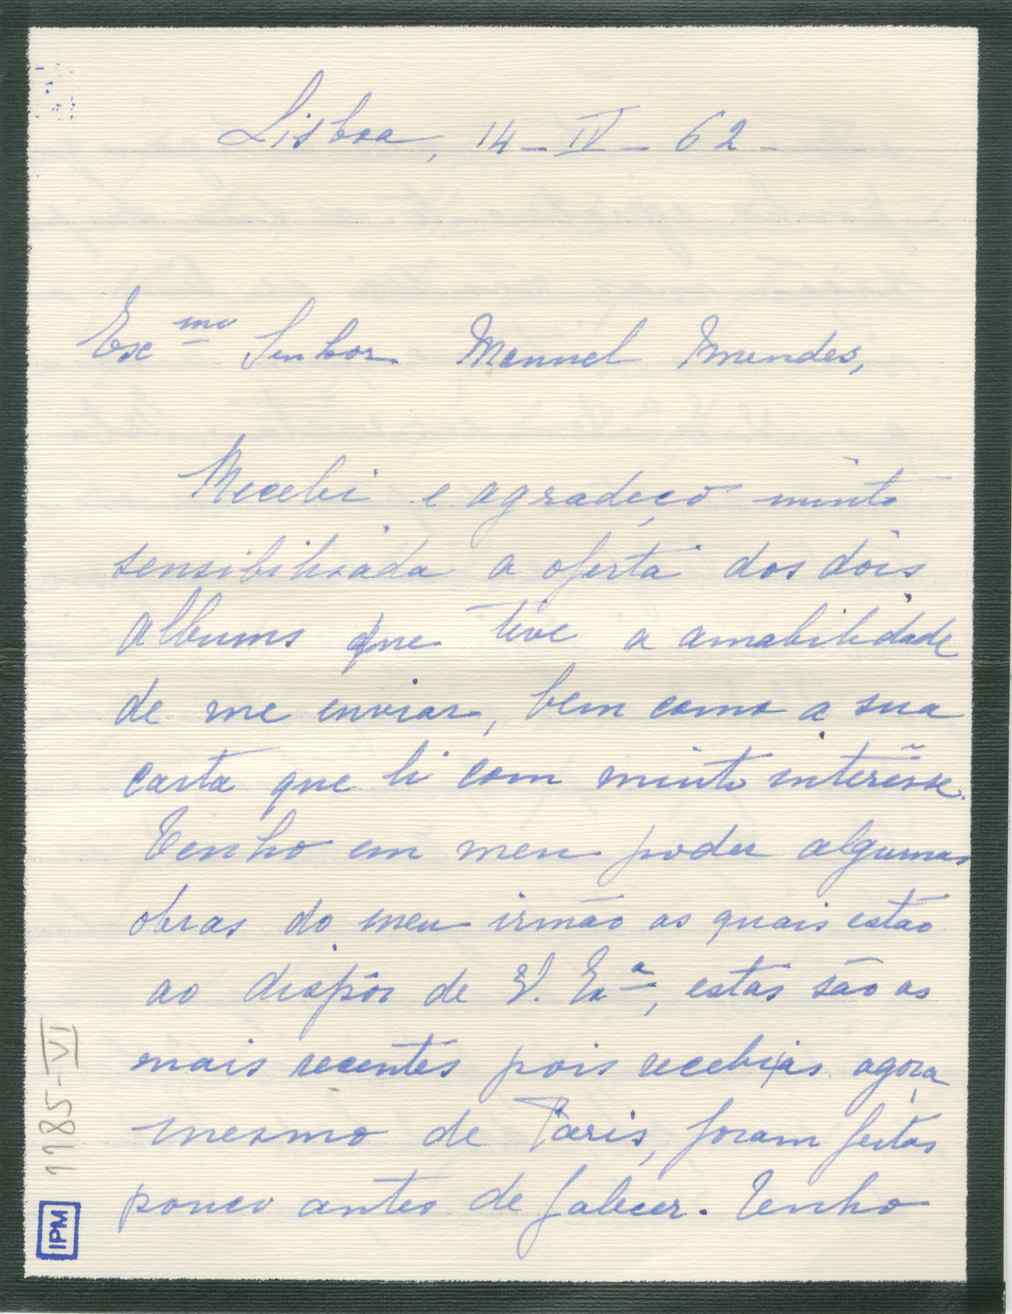 Lisboa, 14 - IV - 62 -
Exmo Senhor Manuel Mendes,
Recebi e agradeço muito
sensibilisada a oferta dos dois
albums que teve a amabilidade
de me enviar, bem como a sua
carta que li com muito interêsse.
Tenho em meu poder algumas
obras do meu irmão as quais estão
ao dispôr de V. Exª, estas são as
mais recentes pois recebi-as agora
mesmo de Paris, foram feitas
pouco antes de falecer. Tenho
1185-VI
IPM